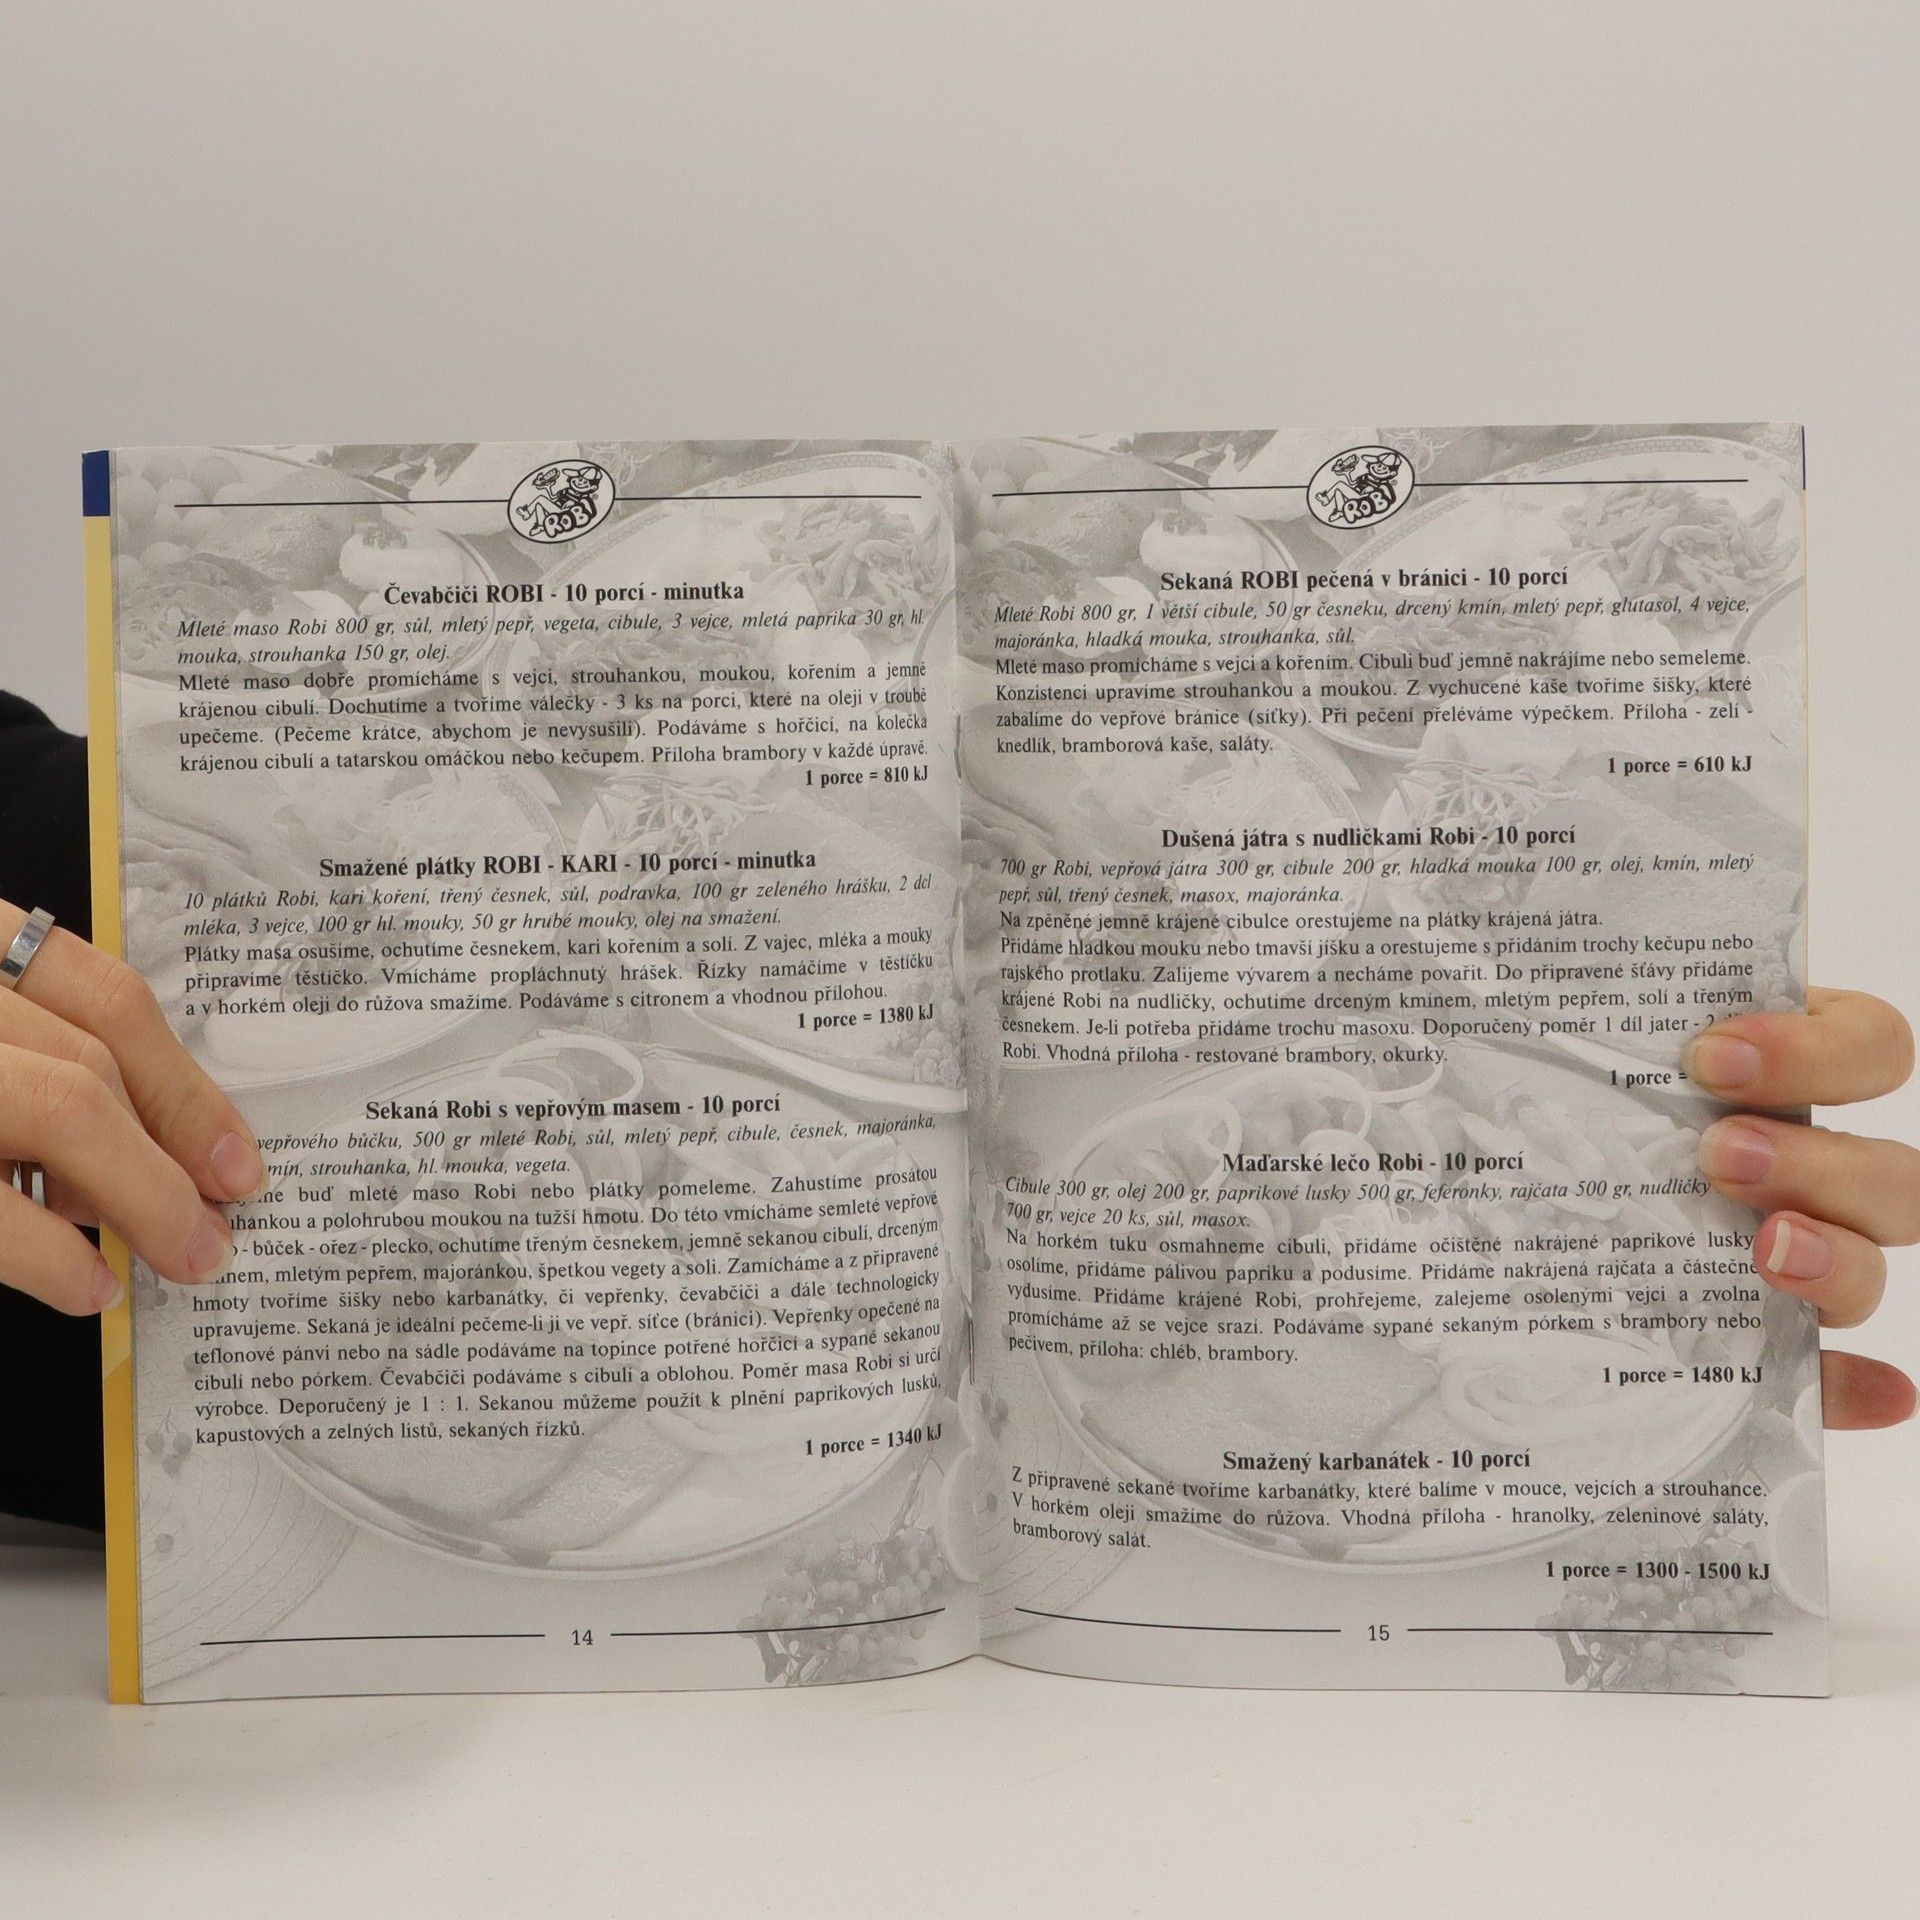 ROBI
Čevabčiči ROBI - 10 porcí - minutka
Mleté maso Robi 800 gr, sůl, mletý pepř, vegeta, cibule, 3 vejce, mletá paprika 30 gr, hl.
mouka, strouhanka 150 gr, olej.
Mleté maso dobře promícháme s vejci, strouhankou, moukou, kořením a jemně
krájenou cibulí. Dochutíme a tvoříme válečky - 3 ks na porci, které na oleji v troubě
upečeme. (Pečeme krátce, abychom je nevysušili). Podáváme s hořčicí, na kolečka
krájenou cibulí a tatarskou omáčkou nebo kečupem. Příloha brambory v každé úpravě.
1 porce = 810 kJ
Smažené plátky ROBI - KARI - 10 porcí - minutka
10 plátků Robi, kari koření, třený česnek, sůl, podravka, 100 gr zeleného hrášku, 2 dcl
mléka, 3 vejce, 100 gr hl. mouky, 50 gr hrubé mouky, olej na smažení.
Plátky masa osušíme, ochutíme česnekem, kari kořením a solí. Z vajec, mléka a mouky
připravíme těstíčko. Vmícháme propláchnutý hrášek. Řízky namáčíme v těstíčku
a v horkém oleji do růžova smažíme. Podáváme s citronem a vhodnou přílohou.
1 porce = 1380 kJ
Sekaná Robi s vepřovým masem - 10 porcí
vepřového bůčku, 500 gr mleté Robi, sůl, mletý pepř, cibule, česnek, majoránka,
strouhanka, hl. mouka, vegeta.
buď mleté maso Robi nebo plátky pomeleme. Zahustíme prosátou
a polohrubou moukou na tužší hmotu. Do této vmícháme semleté vepřové
- bůček - ořez - plecko, ochutíme třeným česnekem, jemně sekanou cibulí, drceným
mletým pepřem, majoránkou, špetkou vegety a soli. Zamícháme a z připravené
hmoty tvoříme šišky nebo karbanátky, či vepřenky, čevabčiči a dále technologicky
upravujeme. Sekaná je ideální pečeme-li ji ve vepř. síťce (bránici). Vepřenky opečené na
teflonové pánvi nebo na sádle podáváme na topince potřené hořčicí a sypané sekanou
cibulí nebo pórkem. Čevabčiči podáváme s cibulí a oblohou. Poměr masa Robi si určí
výrobce. Deporučený je 1 : 1. Sekanou můžeme použít k plnění paprikových lusků,
kapustových a zelných listů, sekaných řízků.
1 porce = 1340 kJ
14
ROBI
Sekaná ROBI pečená v bránici - 10 porcí
Mleté Robi 800 gr, 1 větší cibule, 50 gr česneku, drcený kmín, mletý pepř, glutasol, 4 vejce,
majoránka, hladká mouka, strouhanka, sůl.
Mleté maso promícháme s vejci a kořením. Cibuli buď jemně nakrájíme nebo semeleme.
Konzistenci upravíme strouhankou a moukou. Z vychucené kaše tvoříme šišky, které
zabalíme do vepřové bránice (síťky). Při pečení přeléváme výpečkem. Příloha - zelí -
knedlík, bramborová kaše, saláty.
1 porce = 610 kJ
Dušená játra s nudličkami Robi - 10 porcí
700 gr Robi, vepřová játra 300 gr, cibule 200 gr, hladká mouka 100 gr, olej, kmín, mletý
pepř, sůl, třený česnek, masox, majoránka.
Na zpěněné jemně krájené cibulce orestujeme na plátky krájená játra.
Přidáme hladkou mouku nebo tmavší jíšku a orestujeme s přidáním trochy kečupu nebo
rajského protlaku. Zalijeme vývarem a necháme povařit. Do připravené šťávy přidáme
krájené Robi na nudličky, ochutíme drceným kmínem, mletým pepřem, solí a třeným
česnekem. Je-li potřeba přidáme trochu masoxu. Doporučený poměr 1 díl jater -
Robi. Vhodná příloha - restované brambory, okurky.
1 porce =
Maďarské lečo Robi - 10 porcí
Cibule 300 gr, olej 200 gr, paprikové lusky 500 gr, feferonky, rajčata 500 gr, nudličky
700 gr, vejce 20 ks, sůl, masox.
Na horkém tuku osmahneme cibuli, přidáme očištěné nakrájené paprikové lusky
osolíme, přidáme pálivou papriku a podusíme. Přidáme nakrájená rajčata a částečně
vydusíme. Přidáme krájené Robi, prohřejeme, zalejeme osolenými vejci a zvolna
promícháme až se vejce srazí. Podáváme sypané sekaným pórkem s brambory nebo
pečivem, příloha: chléb, brambory.
1 porce = 1480 kJ
Smažený karbanátek - 10 porcí
Z připravené sekané tvoříme karbanátky, které balíme v mouce, vejcích a strouhance.
V horkém oleji smažíme do růžova. Vhodná příloha - hranolky, zeleninové saláty,
bramborový salát.
1 porce = 1300 - 1500 kJ
15